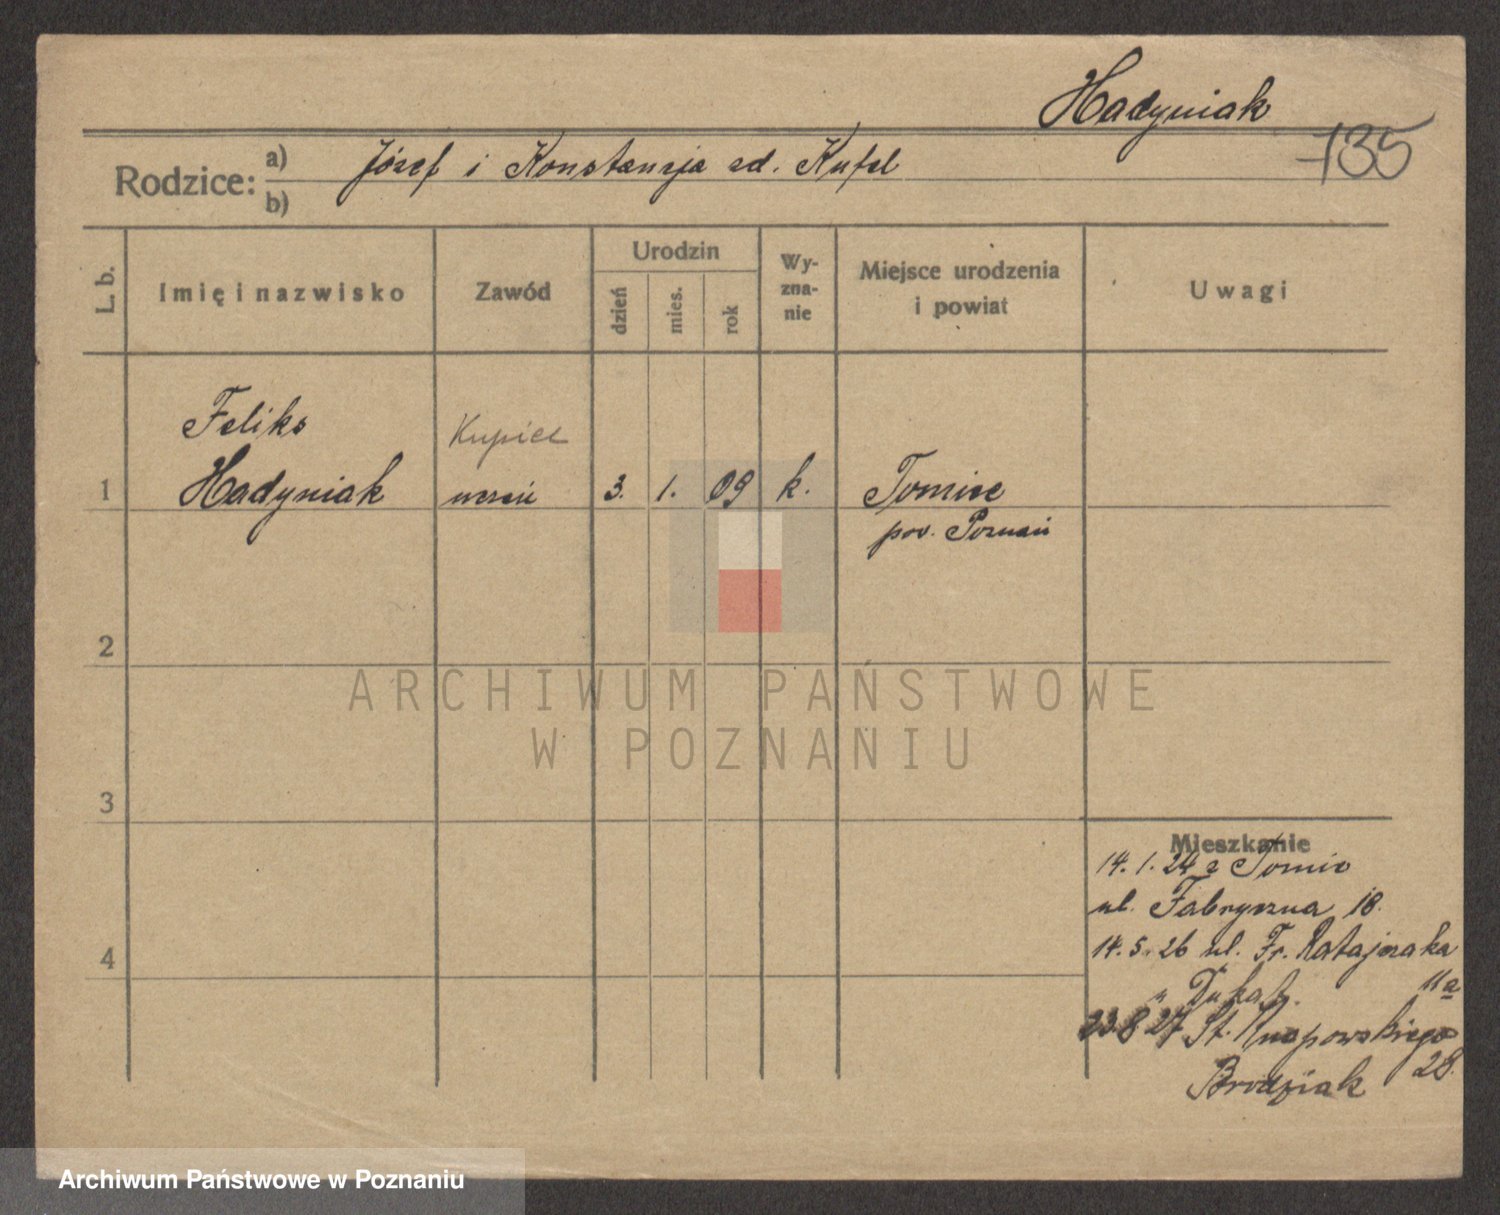 Hadyniak
135
Rodzice: a) Józef i Konstancja zd. Kufel
b)
L. b.
Imię i nazwisko
Zawód
Urodzin
dzień
mies.
rok
Wy-
zna-
nie
Miejsce urodzenia
i powiat
Uwagi
Feliks
Kupiec
1 Hadyniak uczeń 3. 1. 09 k. Tomice
pow. Poznań
2
ARCHIWUM PAŃSTWOWE
W POZNANIU
3
Mieszkanie
14. 1. 24 z Tomic
ul. Fabryczna 18.
4
14. 5. 26 ul. Fr. Ratajczaka
11a
23. 8 27 St. Knapowskiego
28.
Brodziak
Archiwum Państwowe w Poznaniu